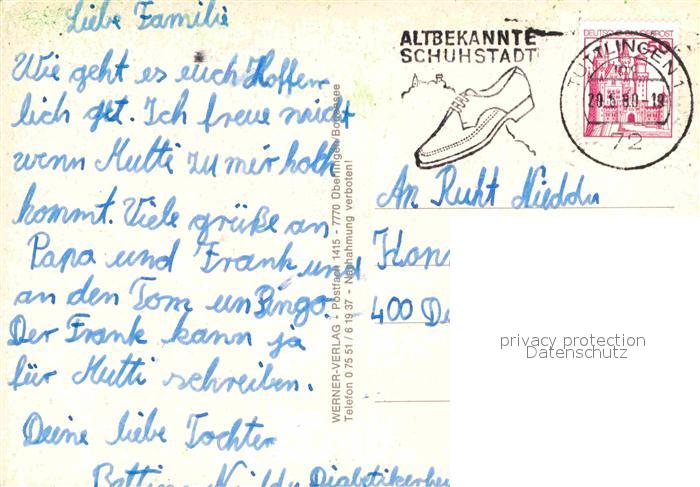 Liebe Familie
Wie geht es euch Hoffen
lich get. Ich freue mich
wenn Mutti zu mir
kommt. Viele grüße an
Papa und Frank und
an den Tom un Pingo.
Der Frank kann ja
für Mutti schreiben.
Deine liebe Tochter
WERNER-VERLAG - Postfach 1415 - 7770 Überlingen/Bodensee
Telefon 0 75 51 / 6 19 37 - Nachahmung verboten!
ALTBEKANNTE
SCHUHSTADT
DEUTSCHE BUNDESPOST
50
TUTTLINGEN 1
-19
72
An Ruht Nieddu
400 Dü
privacy protection
Datenschutz